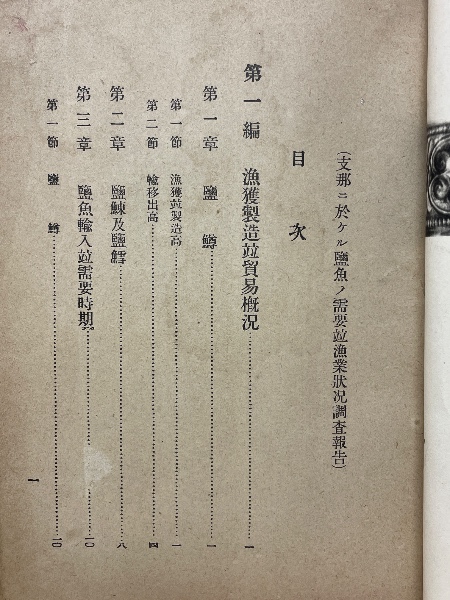 (支那ニ於ケル鹽魚ノ需要竝漁業狀況調査報告)
目次
第一編 漁獲製造竝貿易槪況……一
第一章 鹽鱒……一
第一節 漁獲竝製造高……一
第二節 輸移出高……四
第二章 鹽鰊及鹽鱈……八
第三章 鹽魚輸入竝需要時期……一〇
第一節 鹽鱒……一〇
一